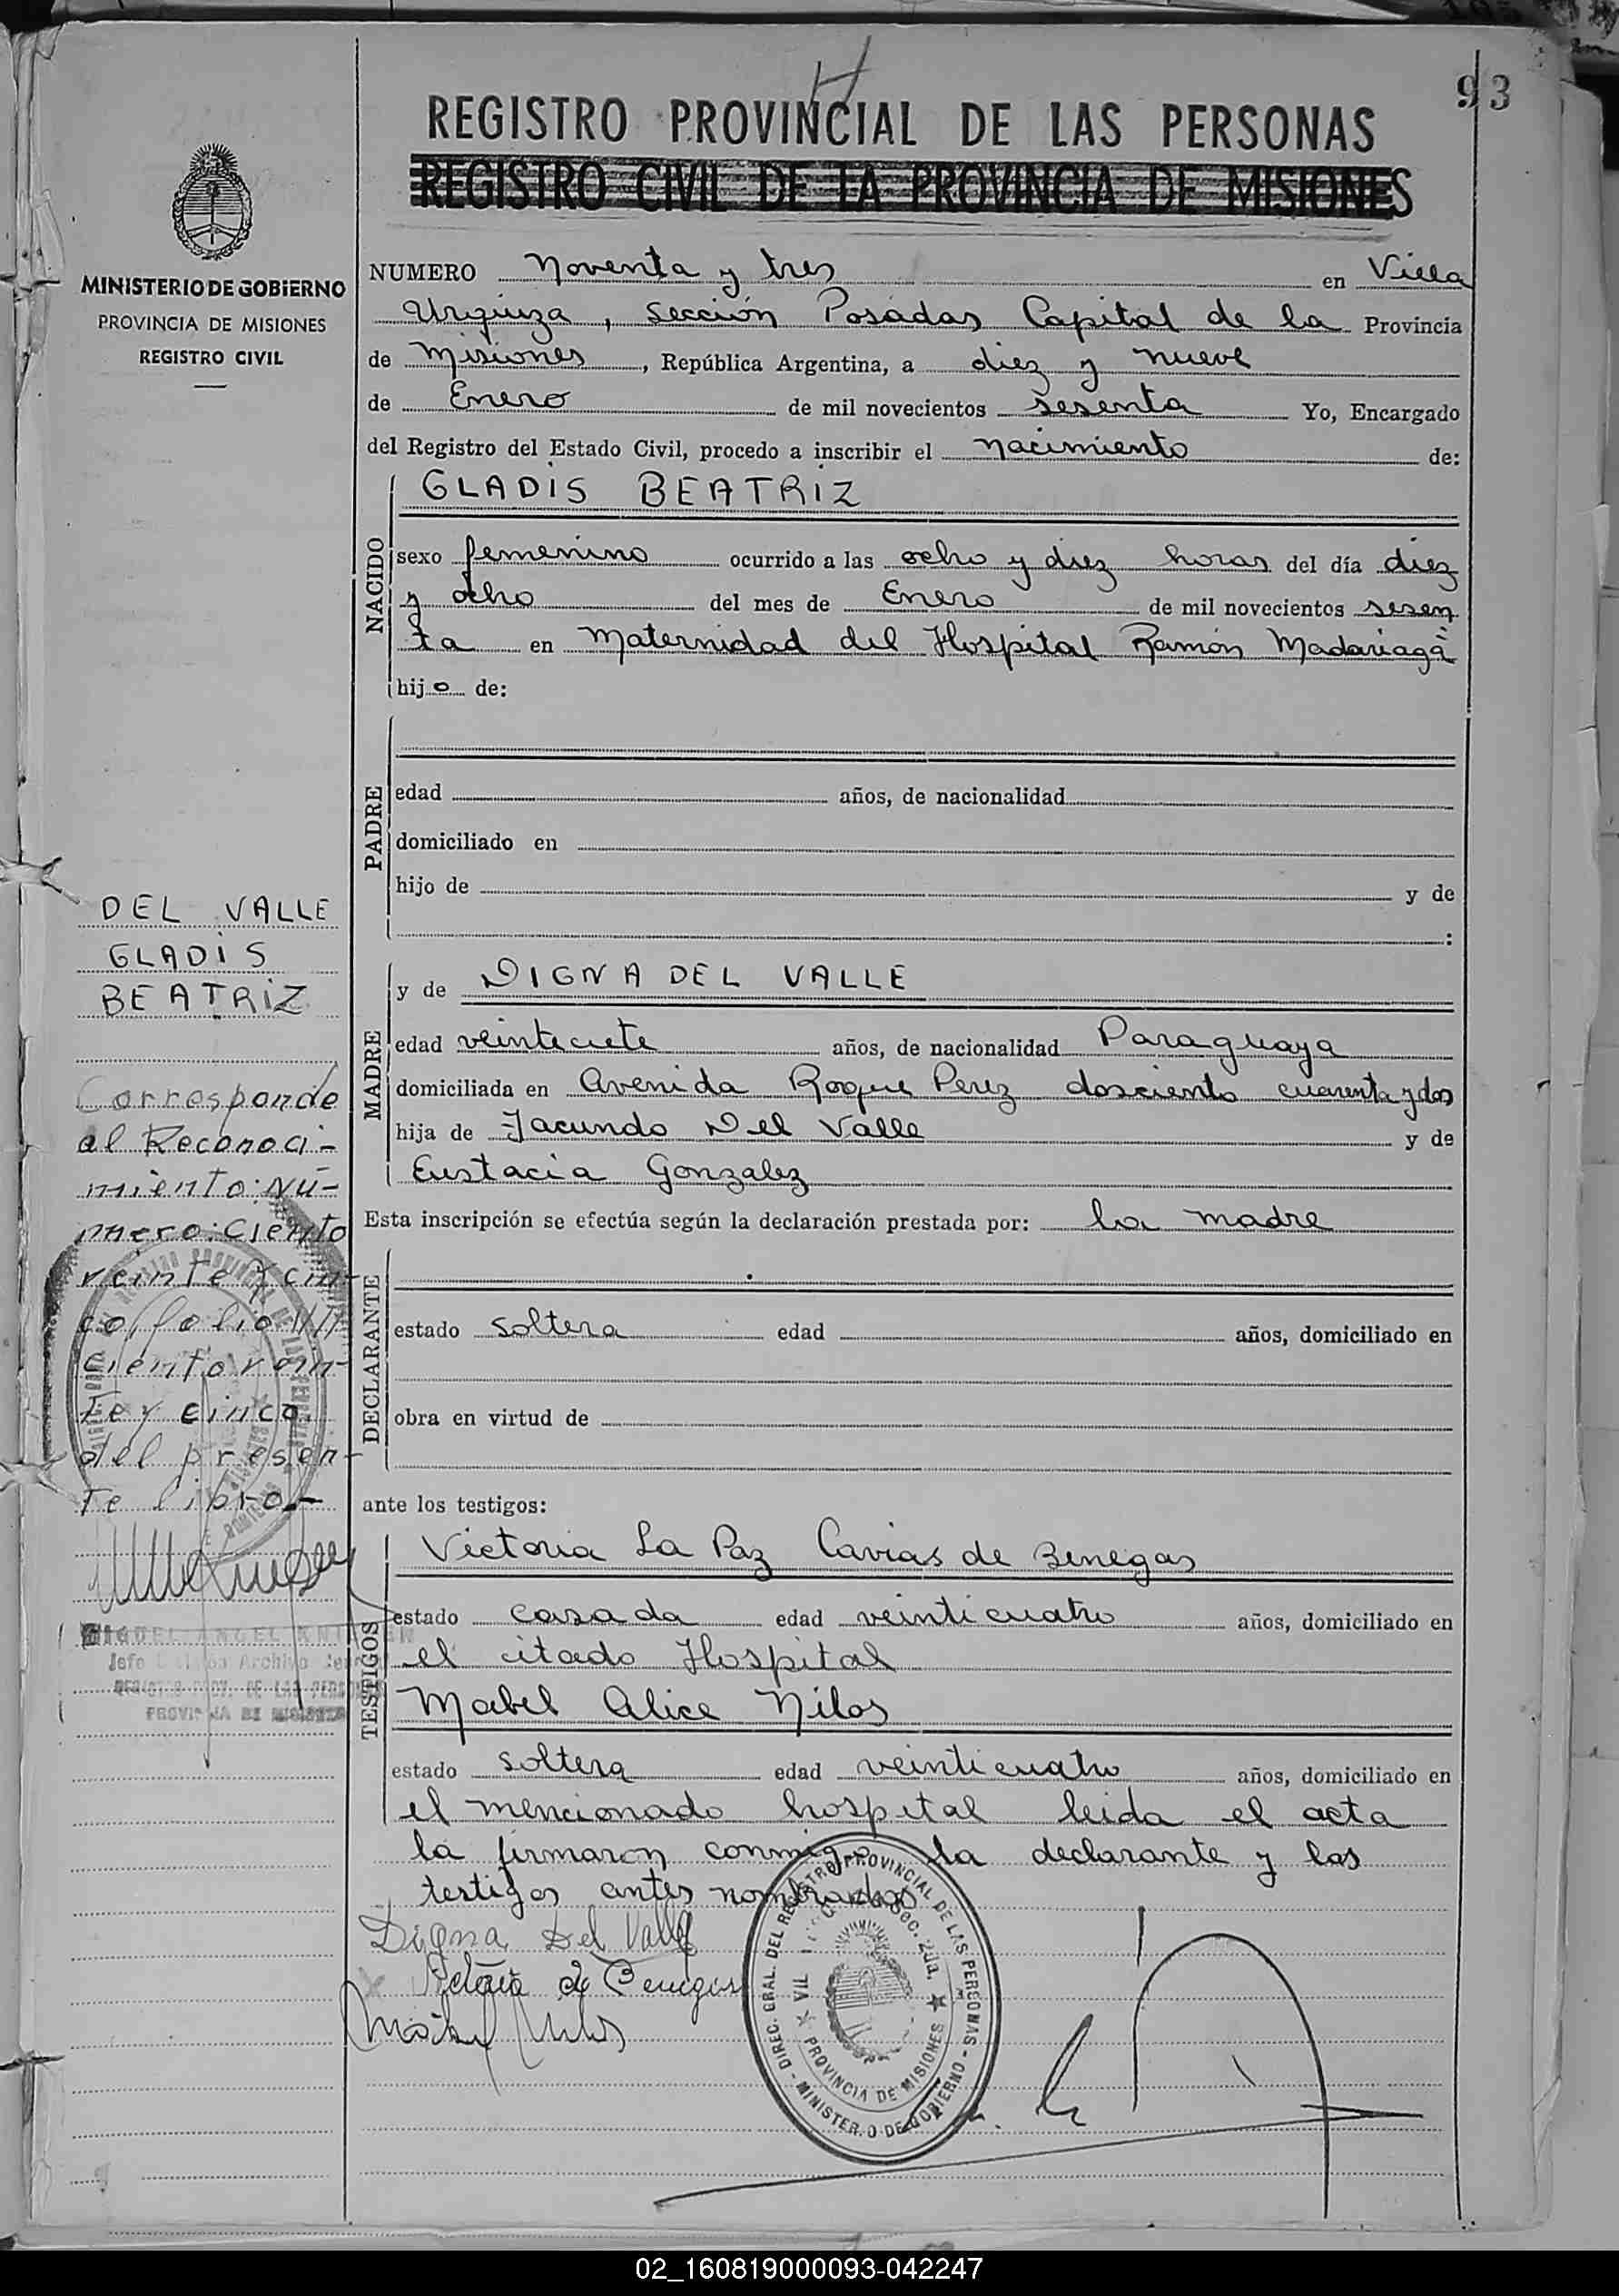 93
REGISTRO PROVINCIAL DE LAS PERSONAS
REGISTRO CIVIL DE LA PROVINCIA DE MISIONES
MINISTERIO DE GOBIERNO
PROVINCIA DE MISIONES
REGISTRO CIVIL
NUMERO Noventa y tres en Villa
Urquiza, sección Posadas Capital de la Provincia
de Misiones, República Argentina, a diez y nueve
de Enero de mil novecientos sesenta Yo, Encargado
del Registro del Estado Civil, procedo a inscribir el nacimiento de:
NACIDO
GLADIS BEATRIZ
sexo femenino ocurrido a las ocho y diez horas del día diez
y ocho del mes de Enero de mil novecientos sesen
ta en Maternidad del Hospital Ramón Madariaga
hijo de:
PADRE
edad años, de nacionalidad
domiciliado en
hijo de y de
:
DEL VALLE
GLADIS
BEATRIZ
Corresponde
al Reconoci-
miento: Nú-
mero: Ciento
veinte y cin-
co, folio
ciento vein-
te y cinco
del presen-
te libro.-
MIGUEL ANGEL
Jefe División Archivo
REGISTRO PROV. DE LAS PERSONAS
PROVINCIA DE MISIONES
MADRE
y de DIGNA DEL VALLE
edad veinteciete años, de nacionalidad Paraguaya
domiciliada en Avenida Roque Perez dosciento cuarenta y dos
hija de Facundo Del Valle y de
Eustacia Gonzalez
Esta inscripción se efectúa según la declaración prestada por: la madre
DECLARANTE
estado soltera edad años, domiciliado en
obra en virtud de
ante los testigos:
TESTIGOS
Victoria La Paz Cavias de Benegas
estado casada edad veinticuatro años, domiciliado en
el citado Hospital
Mabel Alice Nilos
estado soltera edad veinticuatro años, domiciliado en
el mencionado hospital leida el acta
la firmaron conmigo la declarante y los
testigos antes nombrados
Digna Del Valle
de Benegas
DIREC. GRAL. DEL REGISTRO PROVINCIAL DE LAS PERSONAS - MINISTERIO DE GOBIERNO -
PROVINCIA DE MISIONES
02_160819000093-042247